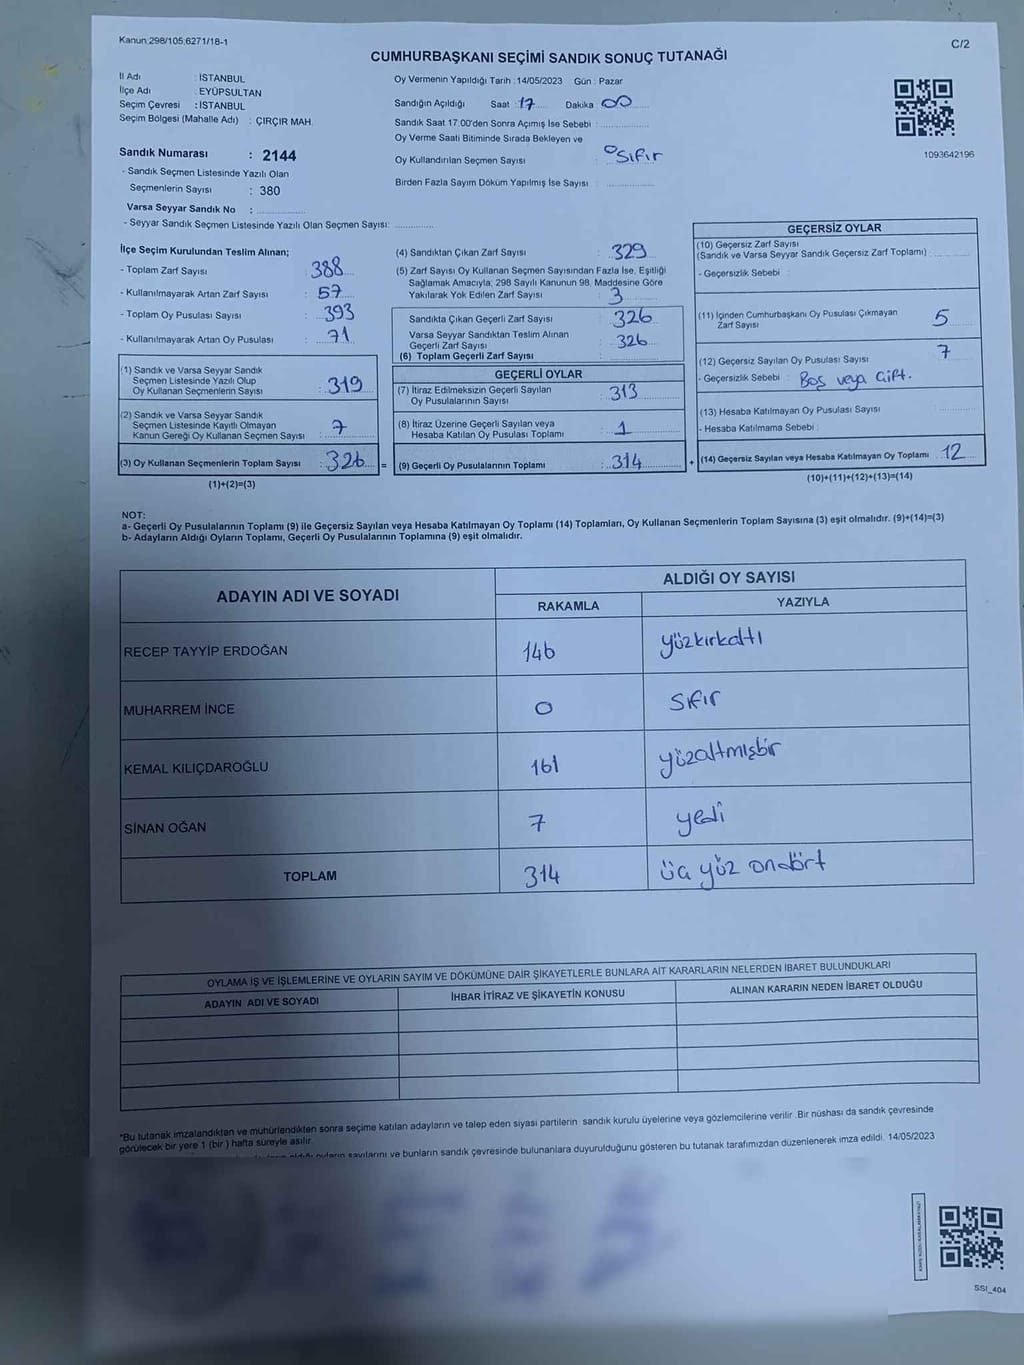 Kanun:298/105,6271/18-1
C/2
CUMHURBAŞKANI SEÇİMİ SANDIK SONUÇ TUTANAĞI
İl Adı : İSTANBUL
İlçe Adı : EYÜPSULTAN
Seçim Çevresi : İSTANBUL
Seçim Bölgesi (Mahalle Adı) : ÇIRÇIR MAH.
Sandık Numarası : 2144
- Sandık Seçmen Listesinde Yazılı Olan
Seçmenlerin Sayısı : 380
Varsa Seyyar Sandık No :
- Seyyar Sandık Seçmen Listesinde Yazılı Olan Seçmen Sayısı:
Oy Vermenin Yapıldığı Tarih : 14/05/2023 Gün : Pazar
Sandığın Açıldığı Saat : 17 Dakika 00
Sandık Saat 17:00'den Sonra Açımış İse Sebebi :
Oy Verme Saati Bitiminde Sırada Bekleyen ve
Oy Kullandırılan Seçmen Sayısı : 0 Sıfır
Birden Fazla Sayım Döküm Yapılmış İse Sayısı :
1093642196
İlçe Seçim Kurulundan Teslim Alınan;
- Toplam Zarf Sayısı : 388
- Kullanılmayarak Artan Zarf Sayısı : 57
- Toplam Oy Pusulası Sayısı : 393
- Kullanılmayarak Artan Oy Pusulası : 71
(1) Sandık ve Varsa Seyyar Sandık
Seçmen Listesinde Yazılı Olup
Oy Kullanan Seçmenlerin Sayısı : 319
(2) Sandık ve Varsa Seyyar Sandık
Seçmen Listesinde Kayıtlı Olmayan
Kanun Gereği Oy Kullanan Seçmen Sayısı : 7
(3) Oy Kullanan Seçmenlerin Toplam Sayısı : 326 =
(1)+(2)=(3)
(4) Sandıktan Çıkan Zarf Sayısı : 329
(5) Zarf Sayısı Oy Kullanan Seçmen Sayısından Fazla İse, Eşitliği
Sağlamak Amacıyla; 298 Sayılı Kanunun 98. Maddesine Göre
Yakılarak Yok Edilen Zarf Sayısı : 3
Sandıkta Çıkan Geçerli Zarf Sayısı : 326
Varsa Seyyar Sandıktan Teslim Alınan
Geçerli Zarf Sayısı : 326
(6) Toplam Geçerli Zarf Sayısı :
GEÇERLİ OYLAR
(7) İtiraz Edilmeksizin Geçerli Sayılan
Oy Pusulalarının Sayısı : 313
(8) İtiraz Üzerine Geçerli Sayılan veya
Hesaba Katılan Oy Pusulası Toplamı : 1
(9) Geçerli Oy Pusulalarının Toplamı : 314 +
GEÇERSİZ OYLAR
(10) Geçersiz Zarf Sayısı
(Sandık ve Varsa Seyyar Sandık Geçersiz Zarf Toplamı) :
- Geçersizlik Sebebi :
(11) İçinden Cumhurbaşkanı Oy Pusulası Çıkmayan
Zarf Sayısı 5
(12) Geçersiz Sayılan Oy Pusulası Sayısı : 7
- Geçersizlik Sebebi : Boş veya Çift.
(13) Hesaba Katılmayan Oy Pusulası Sayısı :
- Hesaba Katılmama Sebebi :
(14) Geçersiz Sayılan veya Hesaba Katılmayan Oy Toplamı : 12
(10)+(11)+(12)+(13)=(14)
NOT:
a- Geçerli Oy Pusulalarının Toplamı (9) ile Geçersiz Sayılan veya Hesaba Katılmayan Oy Toplamı (14) Toplamları, Oy Kullanan Seçmenlerin Toplam Sayısına (3) eşit olmalıdır. (9)+(14)=(3)
b- Adayların Aldığı Oyların Toplamı, Geçerli Oy Pusulalarının Toplamına (9) eşit olmalıdır.
ADAYIN ADI VE SOYADI
ALDIĞI OY SAYISI
RAKAMLA YAZIYLA
RECEP TAYYİP ERDOĞAN 146 yüzkırkaltı
MUHARREM İNCE 0 Sıfır
KEMAL KILIÇDAROĞLU 161 yüzaltmışbir
SİNAN OĞAN 7 yedi
TOPLAM 314 üç yüz ondört
OYLAMA İŞ VE İŞLEMLERİNE VE OYLARIN SAYIM VE DÖKÜMÜNE DAİR ŞİKAYETLERLE BUNLARA AİT KARARLARIN NELERDEN İBARET BULUNDUKLARI
ADAYIN ADI VE SOYADI İHBAR İTİRAZ VE ŞİKAYETİN KONUSU ALINAN KARARIN NEDEN İBARET OLDUĞU
*Bu tutanak imzalandıktan ve mühürlendikten sonra seçime katılan adayların ve talep eden siyasi partilerin sandık kurulu üyelerine veya gözlemcilerine verilir .Bir nüshası da sandık çevresinde
görülecek bir yere 1 (bir ) hafta süreyle asılır.
oyların sayılarını ve bunların sandık çevresinde bulunanlara duyurulduğunu gösteren bu tutanak tarafımızdan düzenlenerek imza edildi. 14/05/2023
SSI_404